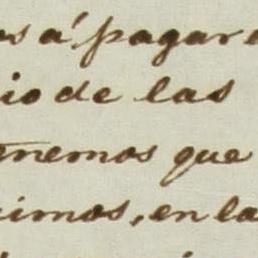 os á pagar
io de las
nemos que
imos, en la